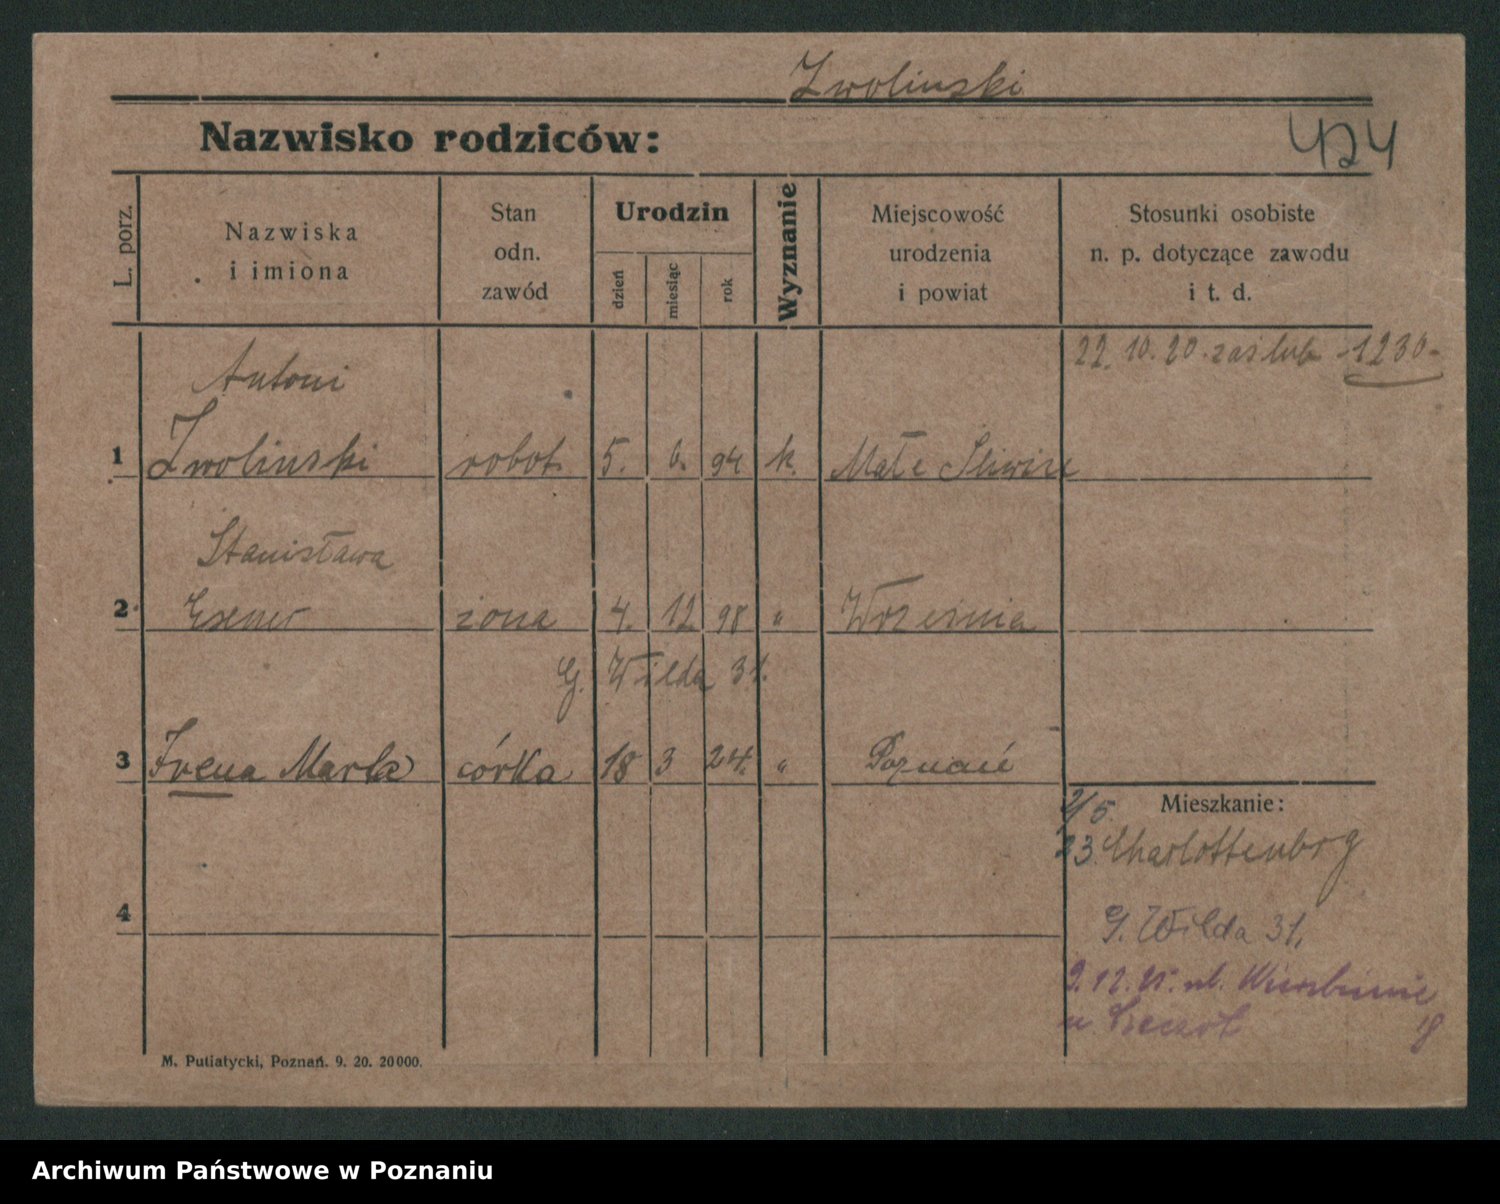 Zwolinski
Nazwisko rodziców:
424
L. porz.
Nazwiska
i imiona
Stan
odn.
zawód
Urodzin
dzień
miesiąc
rok
Wyznanie
Miejscowość
urodzenia
i powiat
Stosunki osobiste
n. p. dotyczące zawodu
i t. d.
22. 10. 20. zaślub. 1230.
Antoni
1 Zwolinski robot. 5. 6. 94 k. Małe
Stanisława
2 żona 4. 12 98 " Września
G. Wilda 31.
3 Irena Marla córka 18 3 24. " Poznań
Mieszkanie:
2/5.
23. Charlottenbrg
4
G. Wilda 31.
9. 12. ul.
u.
18
M. Putiatycki, Poznań. 9. 20. 20000.
Archiwum Państwowe w Poznaniu